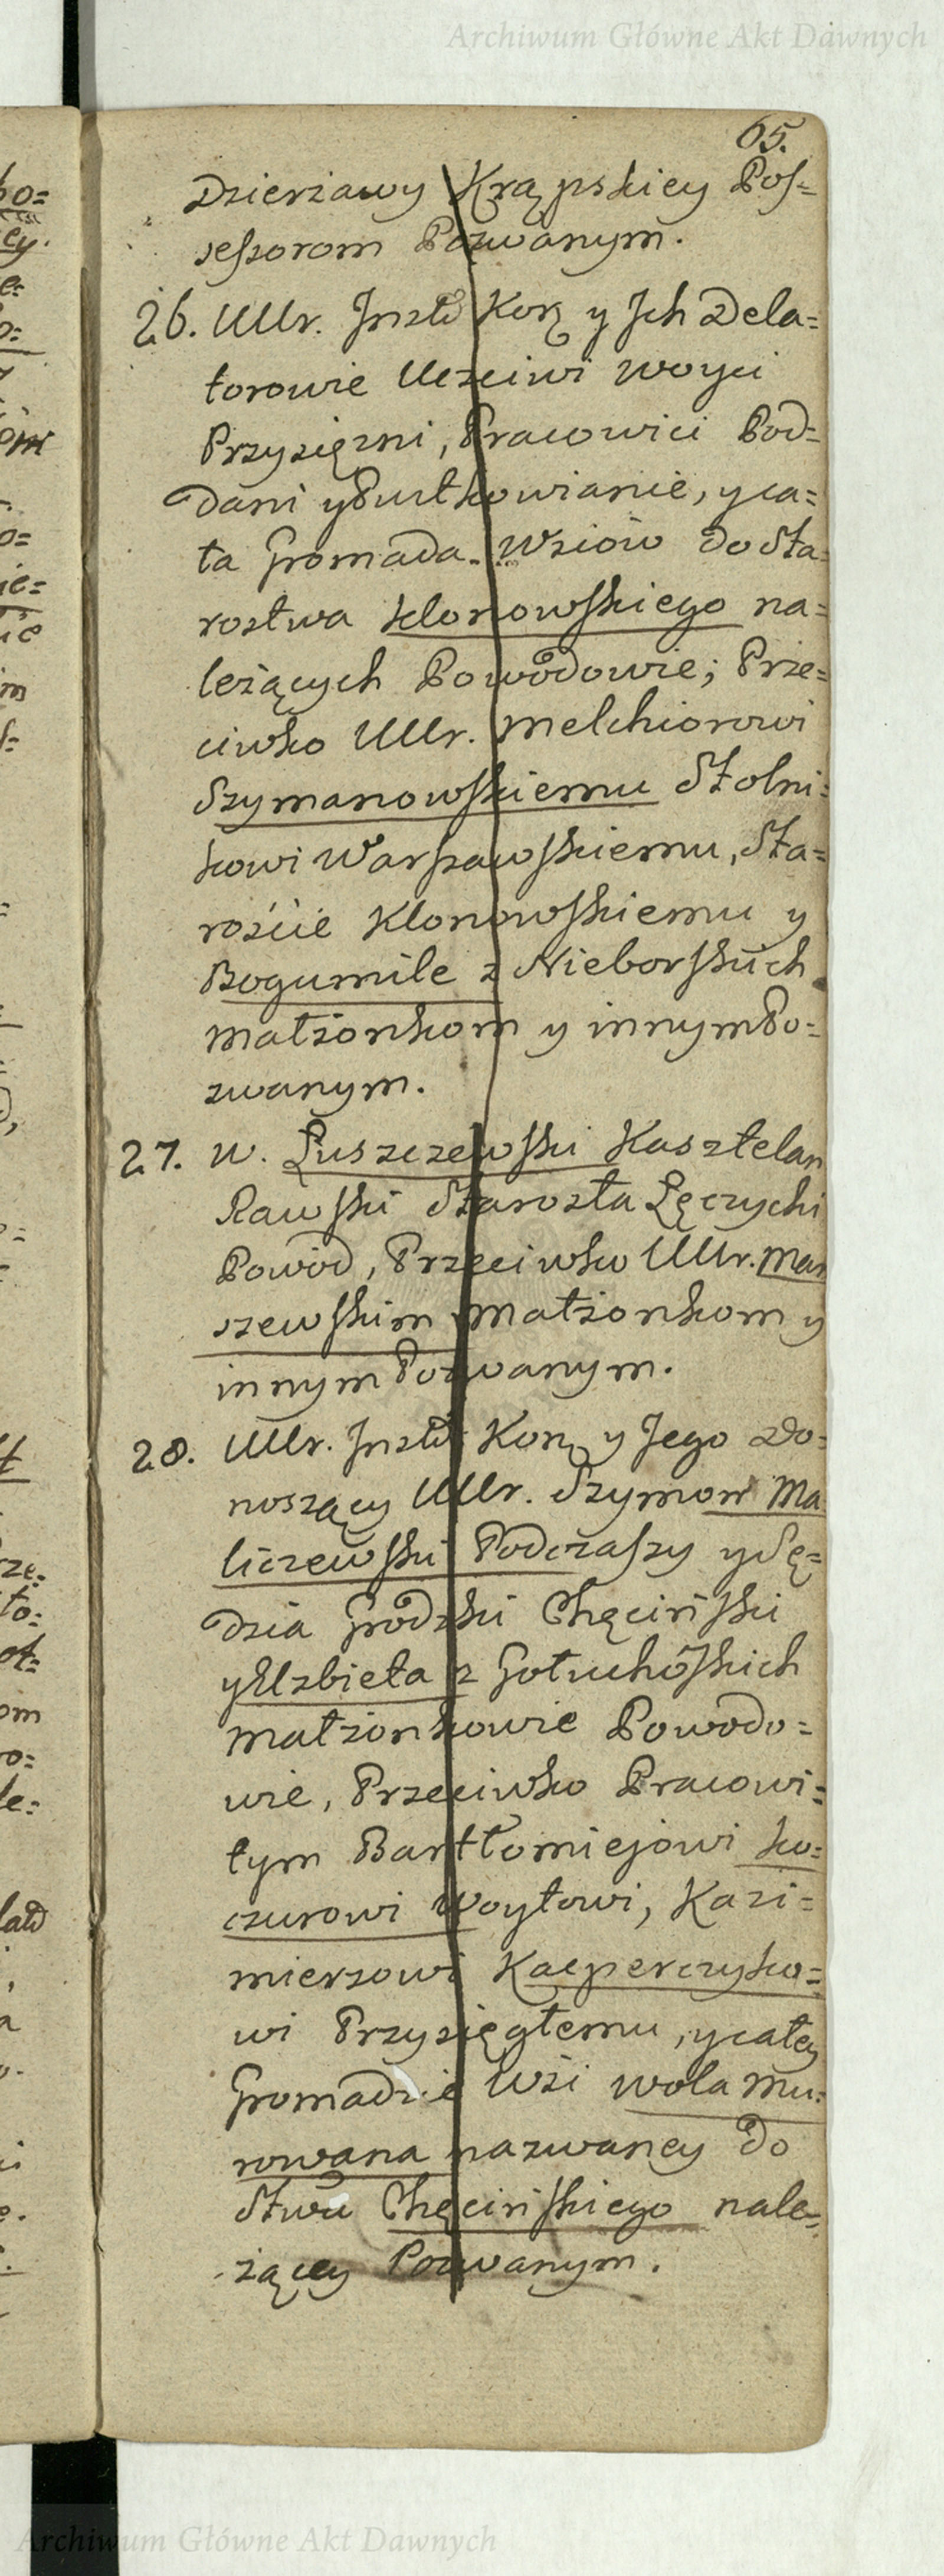 Archiwum Główne Akt Dawnych
65.
Dzierżawy Krąpskiey Pos=
sessorom Pozwanym.
26. Ullr. Insty Kor y Ich Dela=
torowie Uczciwi Woyci
Przysiężni, Pracowici Pod=
dani y Gurtkowianie, y ca=
ła Gromada Wsiów do Sta=
rostwa Klonowskiego na=
leżących Powodowie; Prze=
ciwko Ullr. Melchiorowi
Szymanowskiemu Stolni=
kowi Warszawskiemu, Sta=
roście Klonowskiemu y
Bogumile z Nieborskich
Małżonkom y innym Po=
zwanym.
27. W. Łuszczewski Kasztelan
Rawski Starosta Łęczycki
Powód, Przeciwko Ullr. Mar
szewskim Małżonkom y
innym Pozwanym.
28. Ullr. Insty Kor y Jego Do=
noszący Ullr. Szymon Ma
liczewski Podczaszy y Sę=
dzia Grodzki Chęciński
y Elzbieta z Gołuchoskich
Małżonkowie Powodo=
wie, Przeciwko Pracowi=
tym Bartłomiejowi Ko=
czurowi Woytowi, Kazi=
mierzowi Kacperczyko=
wi Przysięgłemu, y całey
Gromadzie Wsi Wola Mu=
rowana nazwaney do
Stwa Chęcińskiego nale=
żącey Pozwanym.
Archiwum Główne Akt Dawnych